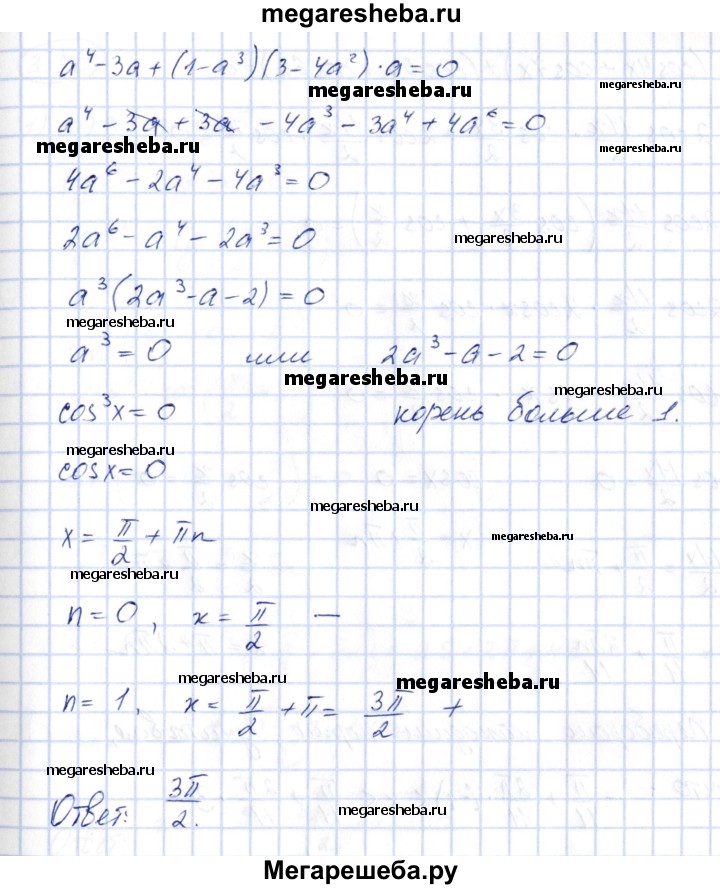 megaresheba.ru
a⁴ - 3a + (1 - a³)(3 - 4a²)·a = 0
megaresheba.ru
megaresheba.ru
a⁴ - 3a + 3a - 4a³ - 3a⁴ + 4a⁶ = 0
megaresheba.ru
megaresheba.ru
4a⁶ - 2a⁴ - 4a³ = 0
2a⁶ - a⁴ - 2a³ = 0
megaresheba.ru
a³(2a³ - a - 2) = 0
megaresheba.ru
a³ = 0 или 2a³ - a - 2 = 0
megaresheba.ru
megaresheba.ru
cos³x = 0 корень больше 1.
megaresheba.ru
cosx = 0
megaresheba.ru
x = π/2 + πn
megaresheba.ru
megaresheba.ru
n = 0, x = π/2 —
megaresheba.ru
megaresheba.ru
n = 1, x = π/2 + π = 3π/2 +
megaresheba.ru
Ответ: 3π/2.
megaresheba.ru
Мегарешеба.ру